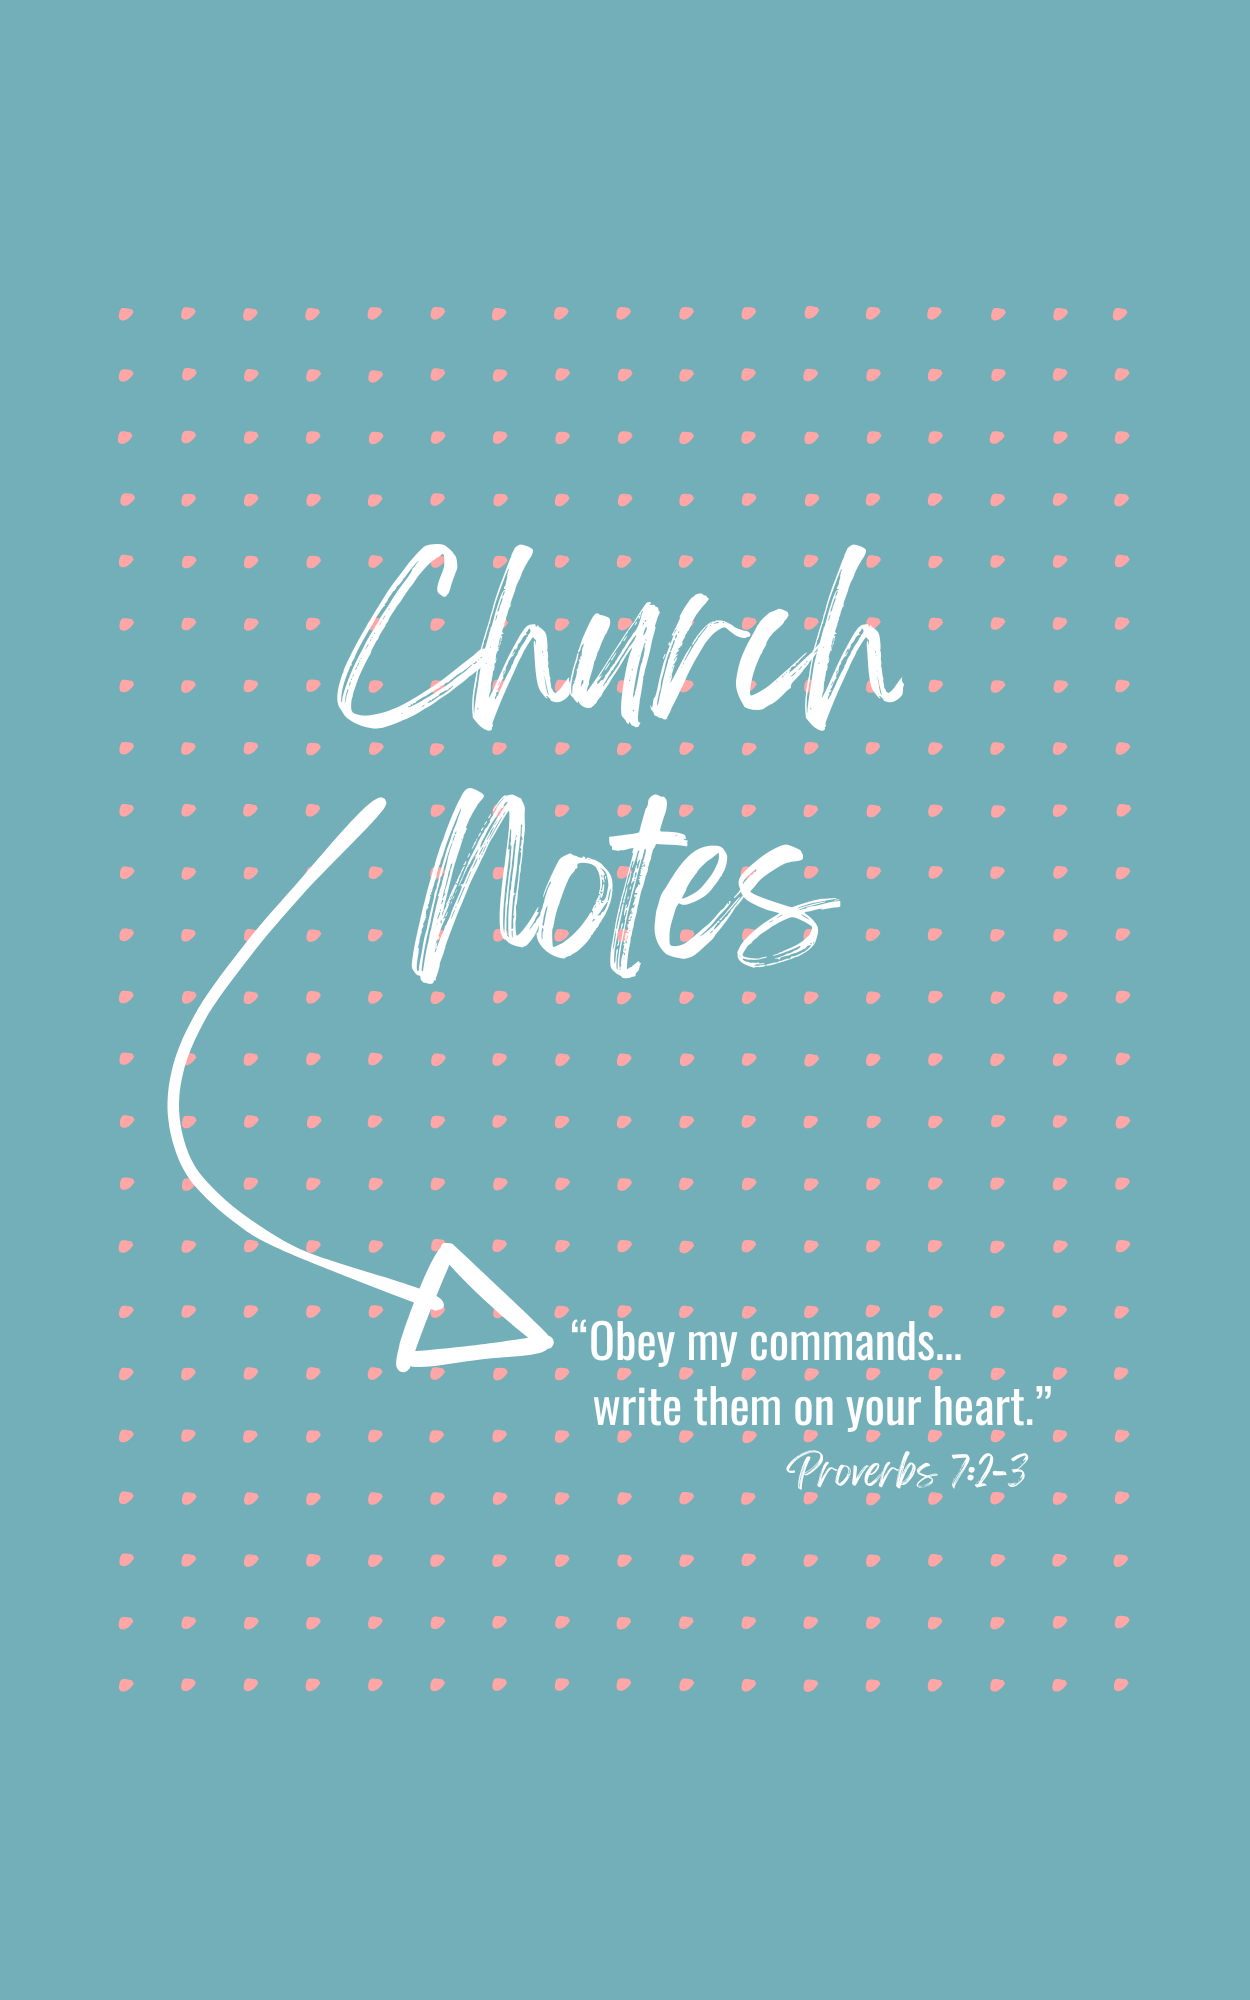 Church
Notes
“Obey my commands...
write them on your heart.”
Proverbs 7:2-3